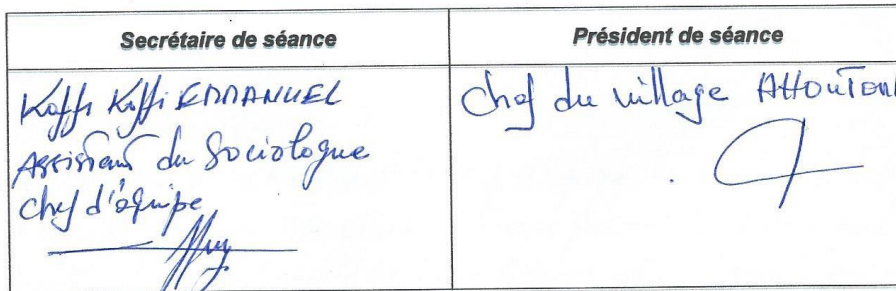 Secrétaire de séance
Président de séance
Koffi Koffi EMMANUEL
Assistant du Sociologue
Chef d'équipe
Chef du village